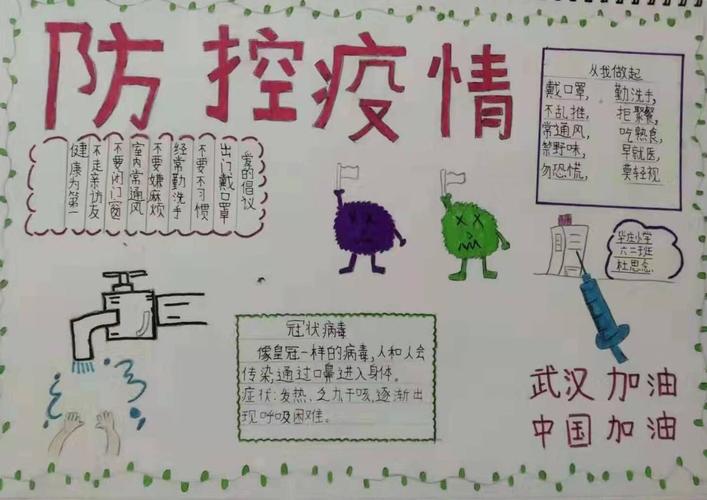 防控疫情
爱的倡议
出门戴口罩
不要不习惯
经常勤洗手
不要嫌麻烦
室内常通风
不要闭门窗
不走亲访友
健康为第一
从我做起
戴口罩, 勤洗手,
不乱推, 拒聚餐,
常通风, 吃熟食,
禁野味, 早就医,
勿恐慌, 莫轻视
庄小学
杜思念
冠状病毒
像皇冠一样的病毒,人和人会
传染,通过口鼻进入身体。
症状:发热、乏力干咳,逐渐出
现呼吸困难。
武汉加油
中国加油